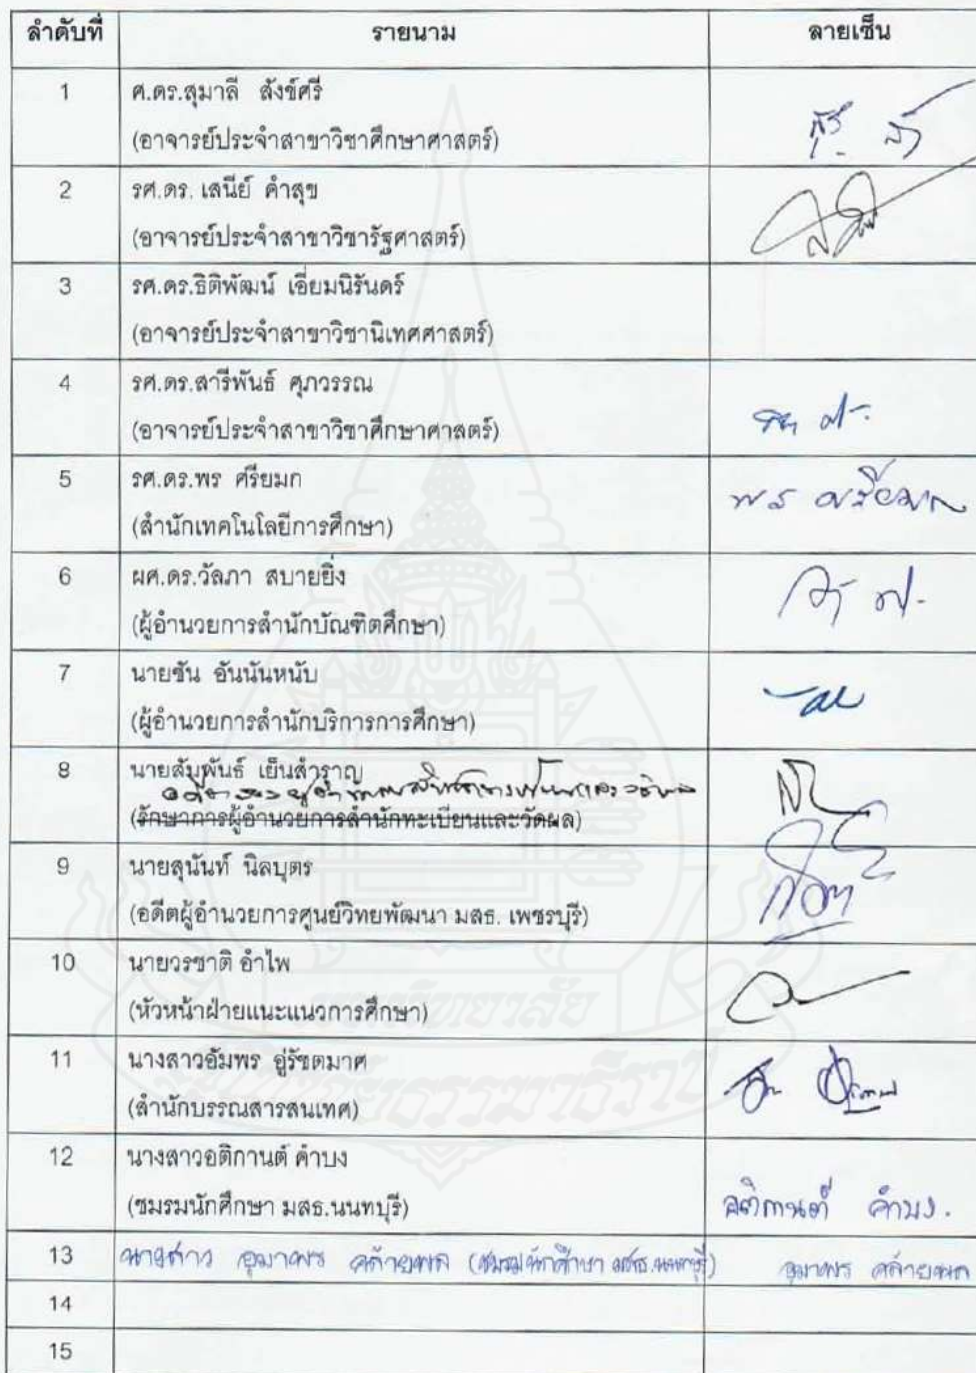 ลำดับที่ รายนาม ลายเซ็น
1 ศ.ดร.สุมาลี สังข์ศรี
(อาจารย์ประจำสาขาวิชาศึกษาศาสตร์)
2 รศ.ดร. เสนีย์ คำสุข
(อาจารย์ประจำสาขาวิชารัฐศาสตร์)
3 รศ.ดร.ธิติพัฒน์ เอี่ยมนิรันดร์
(อาจารย์ประจำสาขาวิชานิเทศศาสตร์)
4 รศ.ดร.สารีพันธ์ ศุภวรรณ
(อาจารย์ประจำสาขาวิชาศึกษาศาสตร์)
5 รศ.ดร.พร ศรียมก พร ศรียมก
(สำนักเทคโนโลยีการศึกษา)
6 ผศ.ดร.วัลภา สบายยิ่ง
(ผู้อำนวยการสำนักบัณฑิตศึกษา)
7 นายขัน อันนันหนับ
(ผู้อำนวยการสำนักบริการการศึกษา)
8 นายสัมพันธ์ เย็นสำราญ
(รักษาการผู้อำนวยการสำนักทะเบียนและวัดผล)
9 นายสุนันท์ นิลบุตร
(อดีตผู้อำนวยการศูนย์วิทยพัฒนา มสธ. เพชรบุรี)
10 นายวรชาติ อำไพ
(หัวหน้าฝ่ายแนะแนวการศึกษา)
11 นางสาวอัมพร อู่รัชตมาศ
(สำนักบรรณสารสนเทศ)
12 นางสาวอติกานต์ คำบง
(ชมรมนักศึกษา มสธ.นนทบุรี) อติกานต์ คำบง.
13 นางสาว อุมาพร คล้ายพล (ชมรมนักศึกษา มสธ.นนทบุรี) อุมาพร คล้ายพล
14
15
มหาวิทยาลัย
สุโขทัยธรรมาธิราช